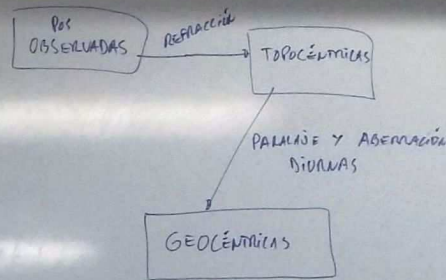 POS
OBSERVADAS
REFRACCIÓN
TOPOCÉNTRICAS
PARALAJE Y ABERRACIÓN
DIURNAS
GEOCÉNTRICAS